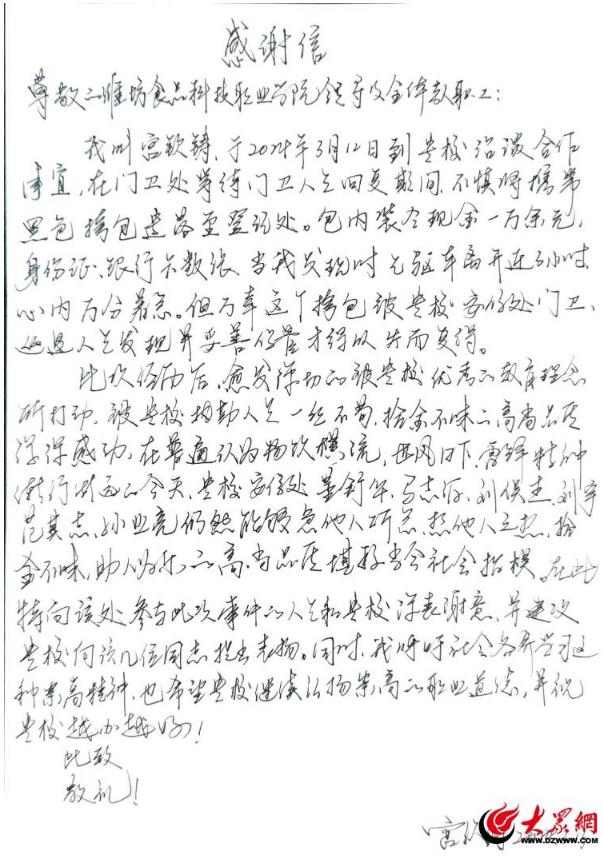 感谢信
尊敬的潍坊食品科技职业学院领导及全体教职工：
我叫宫钦铸，于2024年3月12日到贵校洽谈合作
事宜，在门卫处等待门卫人员回复期间，不慎将携带
黑色挎包遗落至登记处。包内装有现金一万余元，
身份证、银行卡数张，当我发现时已驱车离开近3小时，
心内万分着急。但万幸这个挎包被贵校安保处门卫、
巡逻人员发现并妥善保管才得以失而复得。
此次经历后，愈发深切的被贵校优秀的教育理念
所打动，被贵校执勤人员一丝不苟，拾金不昧的高尚品质
深深感动，在普遍认为物欲横流，世风日下，雷锋精神
渐行渐远的今天，贵校安保处 刘保圭、刘宇
孙业亮仍然能够急他人所急，想他人之想，拾
金不昧，助人为乐的高尚品质堪称当今社会楷模。在此
特向该处参与此次事件的人员和贵校深表谢意，并建议
贵校向该几位同志提出表扬。同时，我呼吁社会各界学习这
种崇高精神，也希望贵校继续弘扬崇高的职业道德，并祝
贵校越办越好！
此致
敬礼！
大众网
www.dzwww.com